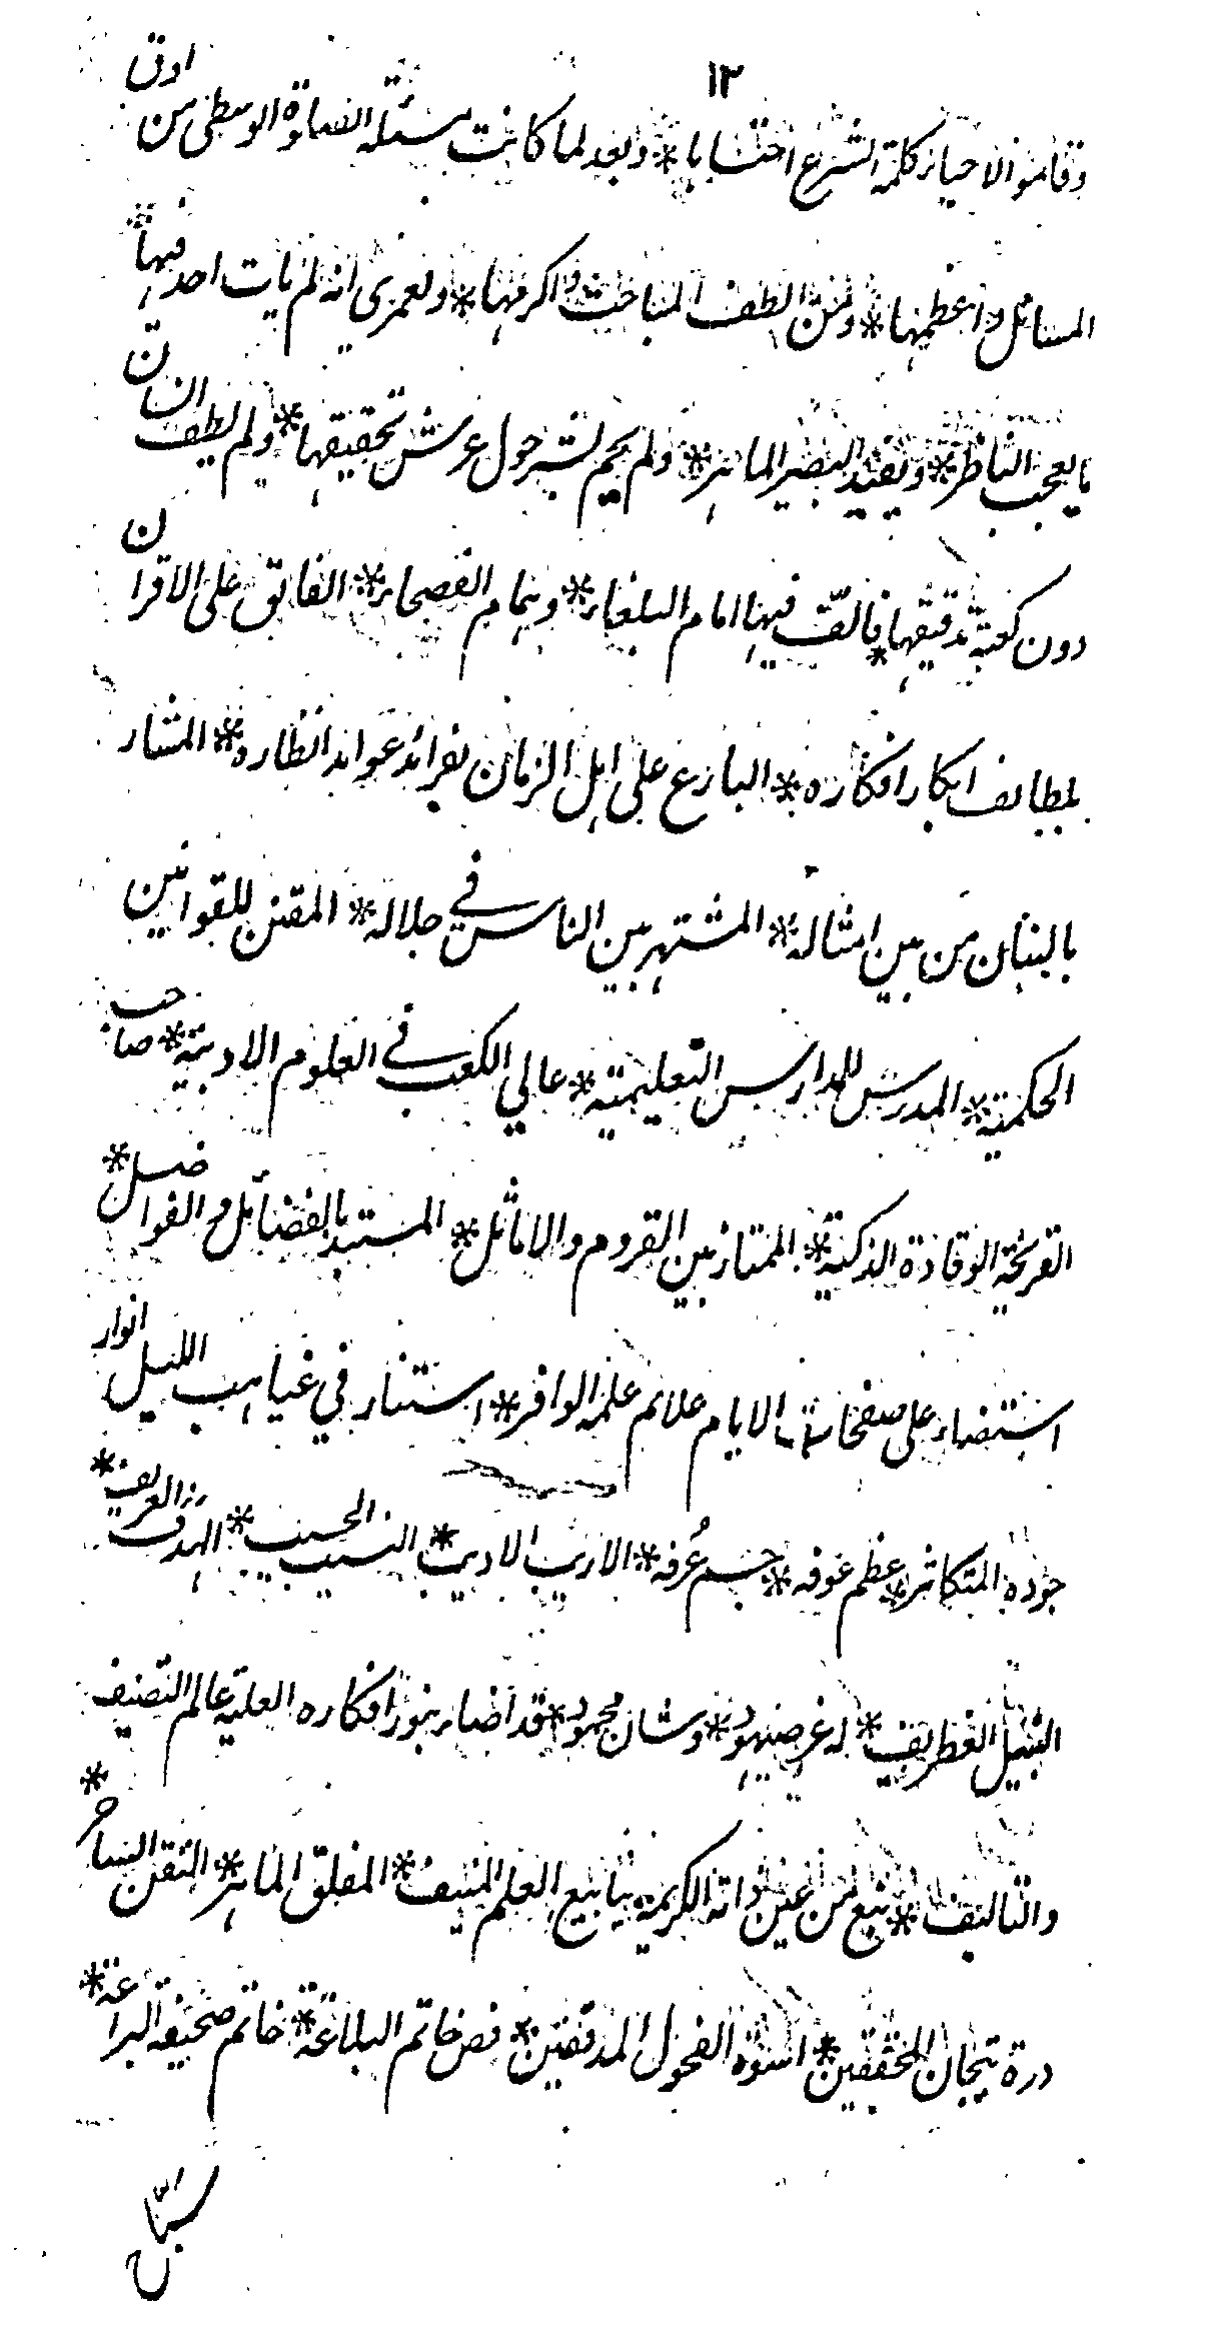 ١٢
وقاموا لاحياء كلمة الشرع احتسابا * وبعد لما كانت مسئلة الصلوة الوسطى من ادق
المسائل واعظمها * ومن الطف المباحث واكرمها * ولعمري انه لم يات احد فيها
ما يعجب الناظر * ويفيد البصير الماهر * ولم يحم بشر حول عرش تحقيقها * ولم يطف انسان
دون كعبة تدقيقها * فالف فيها امام البلغاء * وهمام الفصحاء * الفائق على الاقران
بلطايف ابكار افكاره * البارع على اهل الزمان بفرائد عوايد انظاره * المشار
بالبنان من بين امثاله * المشتهر بين الناس في جلاله * المقنن للقوانين
الحكمية * المدرس للمدارس التعليمية * عالي الكعب في العلوم الادبية * صاحب
القريحة الوقادة الذكية * الممتاز بين القروم والاماثل * المستبد بالفضائل والفواضل *
استضاء على صفحات الايام علائم علمه الوافر * استنار في غياهب الليل انوار
جوده المتكاثر * عظم عوفه * جسم عُرفه * الاريب الاديب * النسيب الحسيب * الهدف العريف *
النبيل الغطريف * له عز منهود * وشان محمود * قد اضاء بنور افكاره العلية عالم التصنيف
والتاليف * نبع من عين ذاته الكريمة ينابيع العلم المنيف * المفلق الماهر * التقن الساحر *
درة تيجان المحققين * اسوة الفحول المدققين * فص خاتم البلاغة * خاتم صحيفة البراعة *